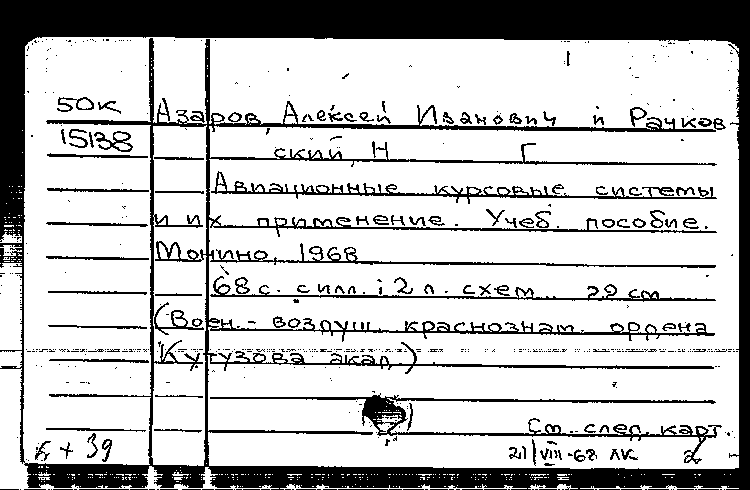 50к Азаров, Алексей Иванович и Рачков-
15138 ский, Н Г
Авиационные курсовые системы
и их применение. Учеб. пособие.
Монино, 1968
68 с. с илл. i 2 л. схем. 22 см
(Воен.-воздуш. краснознам. ордена
Кутузова акад.)
См. след. карт.
+ 39 21/VIII-68 ЛК 2